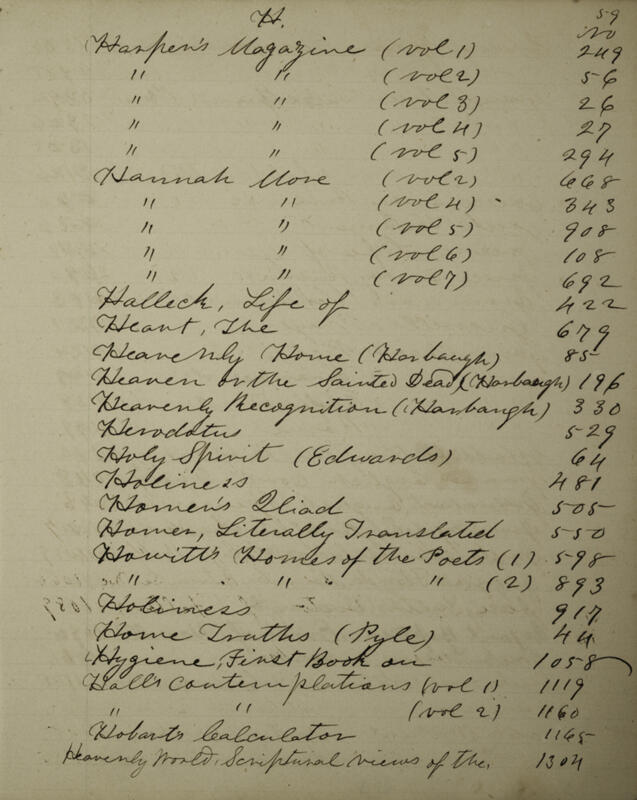 H. 59
No
Harper's Magazine (vol 1) 249
" " (vol 2) 56
" " (vol 3) 26
" " (vol 4) 27
" " (vol 5) 294
Hannah More (vol 2) 668
" " (vol 4) 343
" " (vol 5) 908
" " (vol 6) 108
" " (vol 7) 692
Halleck, Life of 422
Heart, The 679
Heavenly Home (Harbaugh) 85
Heaven or the Sainted Dead, (Harbaugh) 196
Heavenly Recognition (Harbaugh) 330
Herodotus 529
Holy Spirit (Edwards) 64
Holiness 481
Homer's Iliad 505
Homer, Literally Translated 550
Howitt's Homes of the Poets (1) 598
" " " (2) 893
Holiness 917
Home Truths (Pyle) 44
Hygiene, First Book on 1058
Halls contemplations (vol 1) 1119
" " (vol 2) 1160
Hobart's Calculator 1165
Heavenly World, Scriptural views of the. 1304